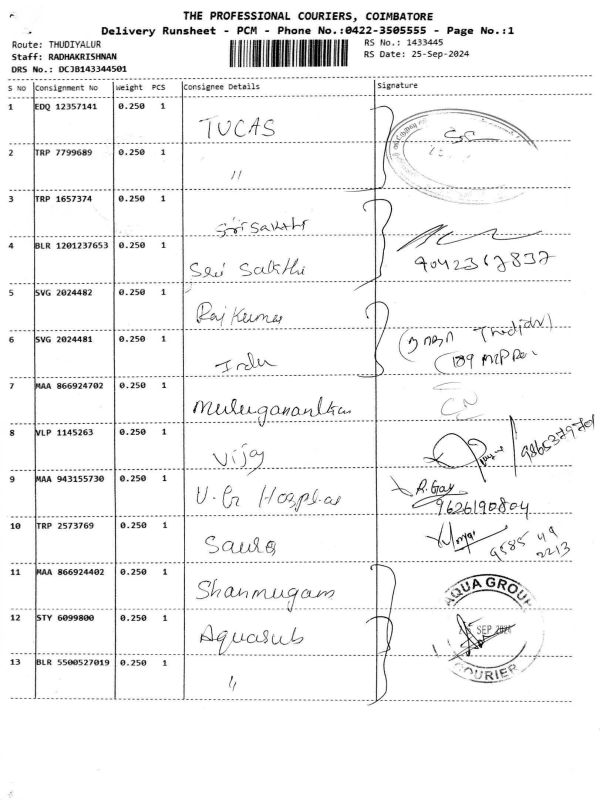 THE PROFESSIONAL COURIERS, COIMBATORE
Delivery Runsheet - PCM - Phone No.:0422-3505555 - Page No.:1
Route: THUDIYALUR
RS No.: 1433445
Staff: RADHAKRISHNAN
RS Date: 25-Sep-2024
DRS No.: DCJB143344501
S No Consignment No Weight PCS Consignee Details Signature
1 EDQ 12357141 0.250 1 TUCAS
2 TRP 7799689 0.250 1 "
3 TRP 1657374 0.250 1 Sri Sakthi
4 BLR 1201237653 0.250 1 Sri Sakthi 9042367837
5 SVG 2024482 0.250 1 Raj Kumar
6 SVG 2024481 0.250 1 Indu
7 MAA 866924702 0.250 1
8 VLP 1145263 0.250 1 Vijay
9 MAA 943155730 0.250 1 V.G Hospital 9626190804
10 TRP 2573769 0.250 1 9585 49
2213
11 MAA 866924402 0.250 1 Shanmugam AQUA GROUP
12 STY 6099800 0.250 1 Aquasub SEP 2024
13 BLR 5500527019 0.250 1 " COURIER